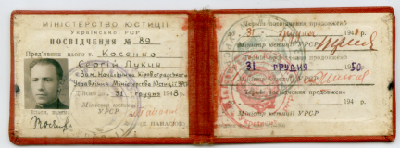 МІНІСТЕРСТВО ЮСТИЦІЇ
Української РСР
ПОСВІДЧЕННЯ № 89
Пред'явник цього т. Косенко
Сергій Лукич
є Зам. Начальника Кіровоградського
Управління Міністерства Юстиції УРСР
Дійсне до 31 грудня 1948 р.
Міністр юстиції
УРСР
Термін посвідчення продовжено
31 грудня 194
Міністр юстиції
УРСР
Термін посвідчення продовжено
31 грудня 50
Міністр юстиції
УРСР
Термін посвідчення продовжено
194 р.
Міністр юстиції
УРСР